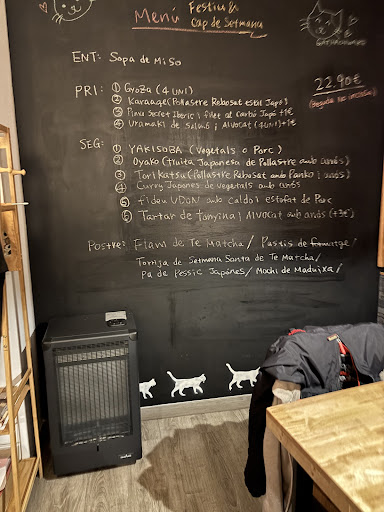 Menú Festiu &
Cap de Setmana
GATHACHONAS
ENT: Sopa de Miso
22.90€
(Beguda no inclosa)
PRI: ① Gyoza (4 uni)
② Karaage (Pollastre Rebosat estil Japó)
③ Pinxo Secret Iberic i filet al Carbó Japó +1€
④ Uramaki de Salmó i Alvocat (4uni) +1€
SEG: ① YAKISOBA (Vegetals o Porc)
② Oyako (truita Japonesa de Pollastre amb arròs)
③ Torikatsu (Pollastre Rebosat amb Panko i arròs)
④ Curry Japones de vegetals amb arròs
⑤ Fideu UDON amb caldo i estofat de Porc
⑤ Tartar de tonyina i Alvocat amb arròs (+3€)
Postre: Flam de Te Matcha / Pastis de formatge /
Torrija de Setmana Santa de Te Matcha /
Pa de Pessic Japónes / Mochi de Maduixa /